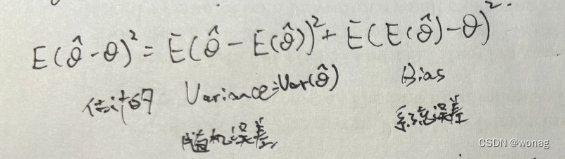 E(θ̂-θ)² = E(θ̂-E(θ̂))² + E(E(θ̂)-θ)²
Variance=Var(θ̂) Bias
随机误差 系统误差
CSDN @wonag